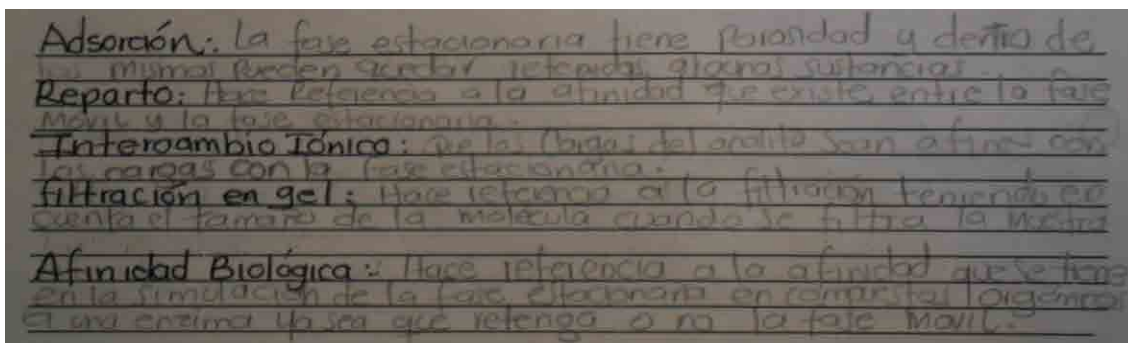 Adsorción: La fase estacionaria tiene porosidad y dentro de
los mismos pueden quedar retenidas algunas sustancias.
Reparto: Hace Referencia a la afinidad que existe entre la fase
Movil y la fase estacionaria.
Intercambio Iónico: Que las Cargas del analito sean afines con
las cargas con la fase estacionaria.
filtración en gel: Hace referencia a la filtración teniendo en
cuenta el tamaño de la molecula cuando se filtra la muestra
Afinidad Biológica: Hace referencia a la afinidad que se tiene
en la simulación de la fase estacionaria en compuestos orgánicos
a una enzima ya sea que retenga o no la fase Movil.